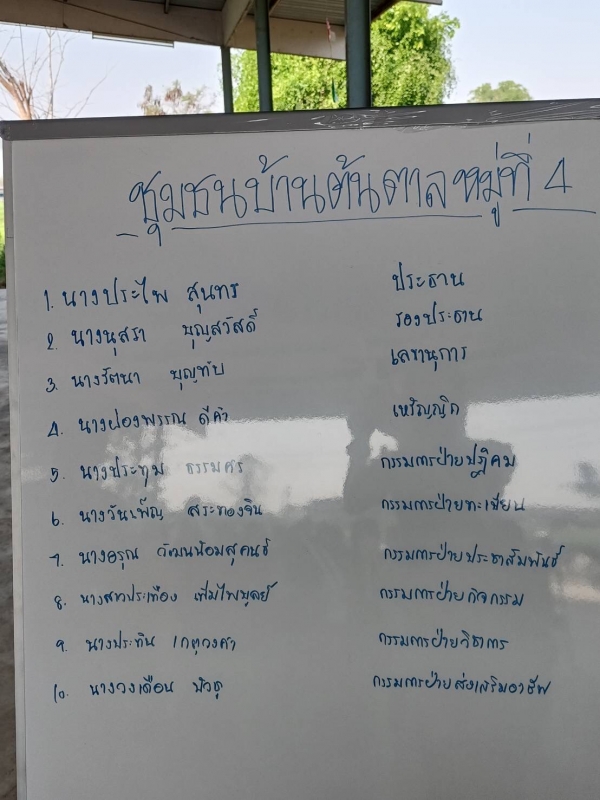 ชุมชนบ้านต้นตาลหมู่ที่ 4
1. นางประไพ สุนทร ประธาน
2. นางนุสรา บุญสวัสดิ์ รองประธาน
3. นางรัตนา บุญทับ เลขานุการ
4. นางผ่องพรรณ ดีคำ เหรัญญิก
5. นางประทุม ธรรมศร กรรมการฝ่ายปฏิคม
6. นางวันเพ็ญ สระทองจีน กรรมการฝ่ายทะเบียน
7. นางอรุณ วัฒนน้อมสุคนธ์ กรรมการฝ่ายประชาสัมพันธ์
8. นางสาวประเทือง เพิ่มไพบูลย์ กรรมการฝ่ายกิจกรรม
9. นางประทิน เกตุวงศา กรรมการฝ่ายวิชาการ
10. นางดวงเดือน บัวดู กรรมการฝ่ายส่งเสริมอาชีพ